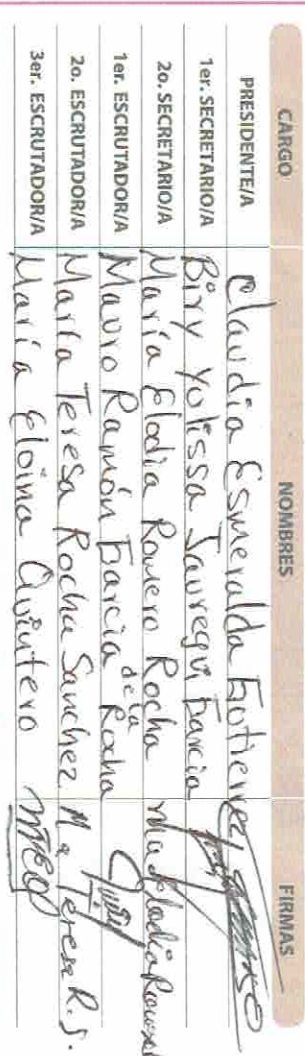 CARGO NOMBRES FIRMAS
PRESIDENTE/A Claudia Esmeralda Gutierrez
1er. SECRETARIO/A Biry Yulissa Jauregui Garcia
2o. SECRETARIO/A María Elodia Romero Rocha Ma Elodia Romero
1er. ESCRUTADOR/A Mauro Ramón Garcia de la Rocha
2o. ESCRUTADOR/A María Teresa Rocha Sanchez Ma Teresa R. S.
3er. ESCRUTADOR/A María Eloina Quintero MEQ